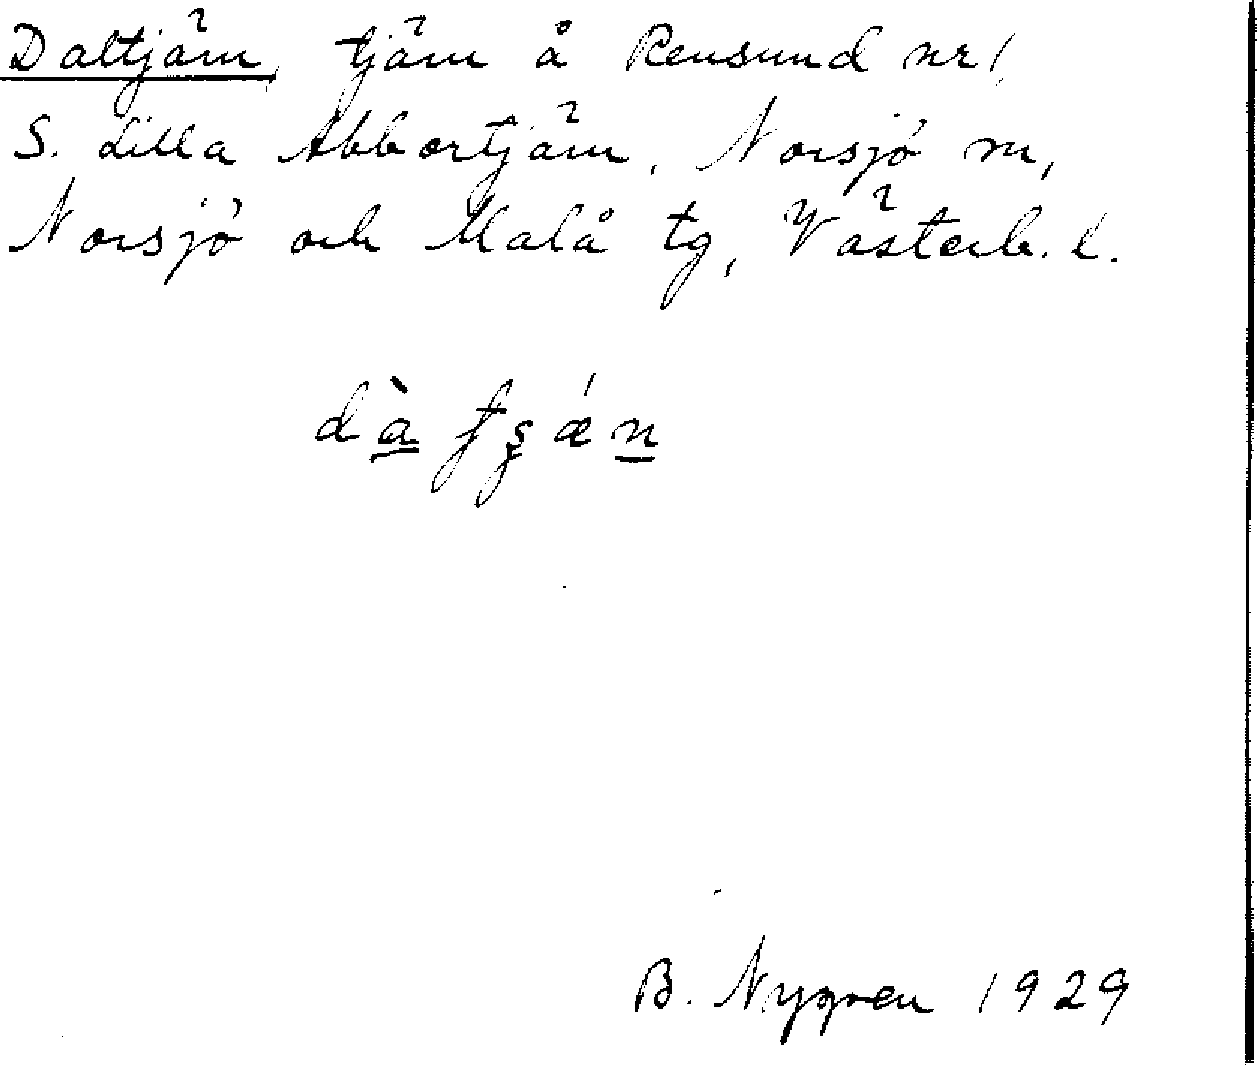 Daltjärn, tjärn å Rensund nr 1,
S. Lilla Abbortjärn, Norsjö sn,
Norsjö och Malå tg, Västerb. l.
B. Nygren 1929